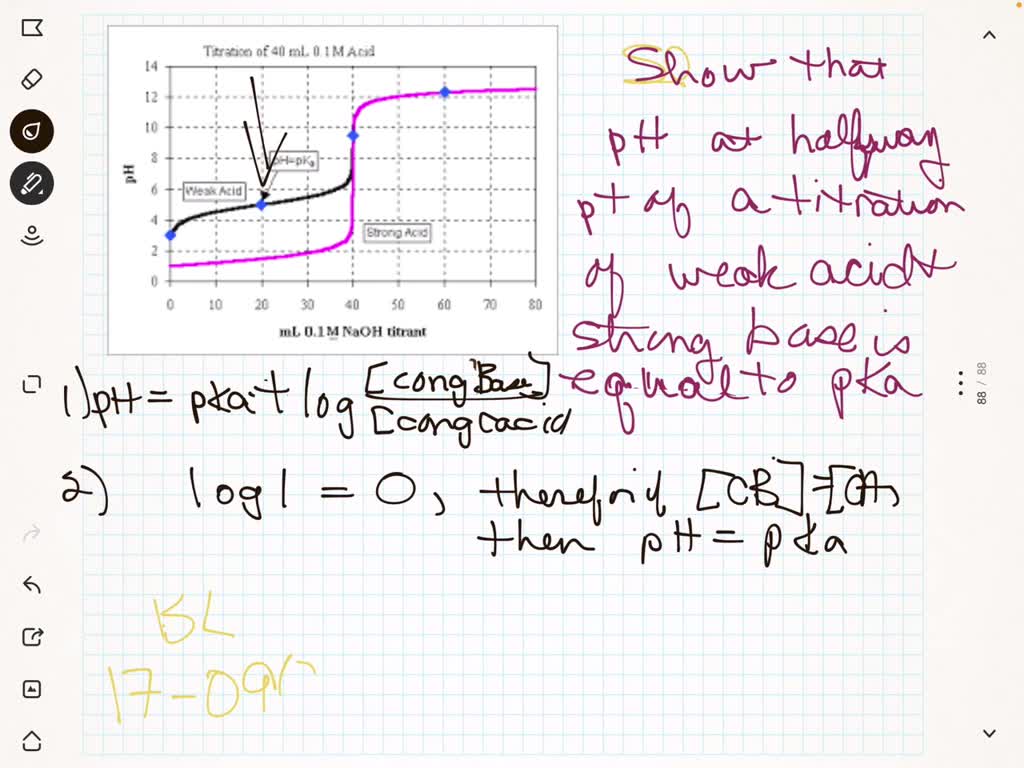 Titration of 40 mL 0.1M Acid
14
12
10
8
6
4
2
0
pH
pH=pKa
Weak Acid
Strong Acid
0 10 20 30 40 50 60 70 80
mL 0.1M NaOH titrant
Show that
pH at halfway
pt of a titration
of weak acid +
strong base is
equal to pKa
1) pH = pKa + log [cong Base]
[cong acid
2) log 1 = 0, therefor if [CB] = [CA]
then pH = pKa
88 / 88
BL
17-09